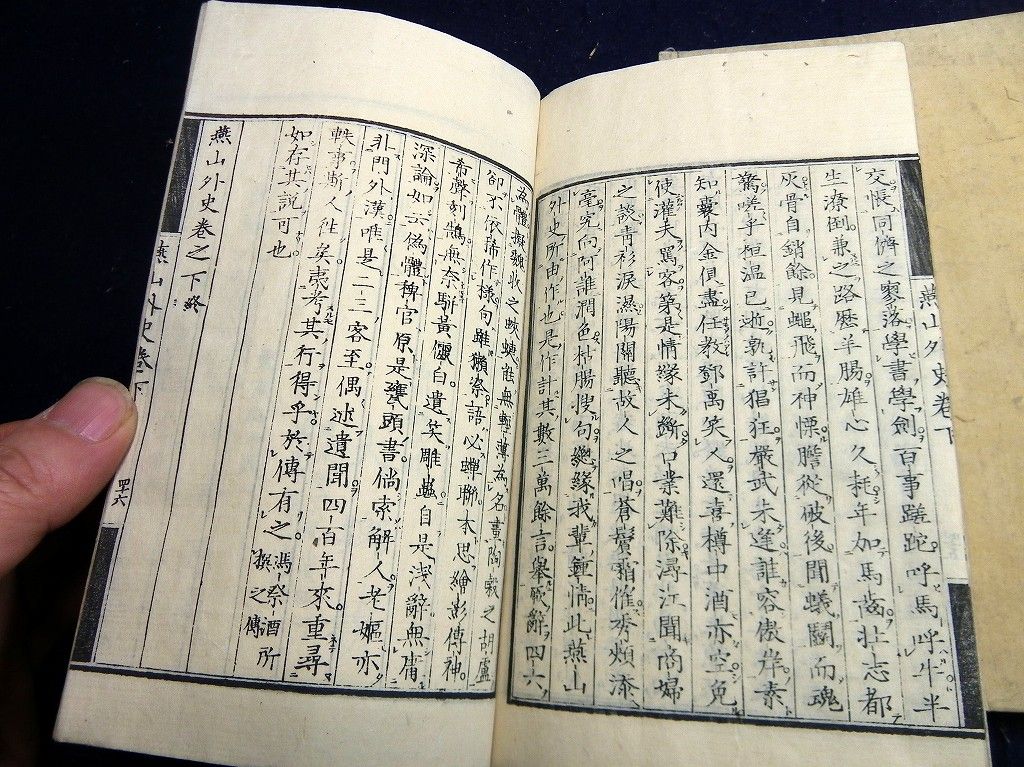 燕山外史卷下
交悵同儕之寥落學書學劍百事蹉跎呼馬呼牛半
生潦倒兼之路歷羊腸雄心久耗年加馬齒壯志都
灰骨自銷餘見蠅飛而神慄膽從破後聞蟻鬭而魂
驚嗟乎桓温已逝孰計猖狂嚴武未逢誰容傲岸素
知囊内金俱盡任教鄧禹笑人還喜樽中酒亦空免
使灌夫罵客第是情緣未斷口業難除潯江聞商婦
之談青衫淚濕陽關聽故人之唱蒼鬢霜催秀頰添
毫究向阿誰潤色枯腸搜句總緣我輩鍾情此燕山
外史所由作也是作計其數三萬餘言舉成辭四六
為體擬魏收之蛺蝶詎無輕薄為名畫陶穀之胡盧
卻不依稀作樣句雖獺祭語必蟬聯本思繪影傳神
希聲刻鵠無奈駢黃儷白遺笑雕蟲自是淺辭無庸
深論如云偽體稗官原是甕頭書倘索解人老嫗亦
非門外漢唯是二三客至偶述遺聞四百年來重尋
軼事斯人往矣夷考其行得乎於傳有之馮祭酒所
撰之傳
如存其說可也
燕山外史卷之下終
燕山外史卷下
四六